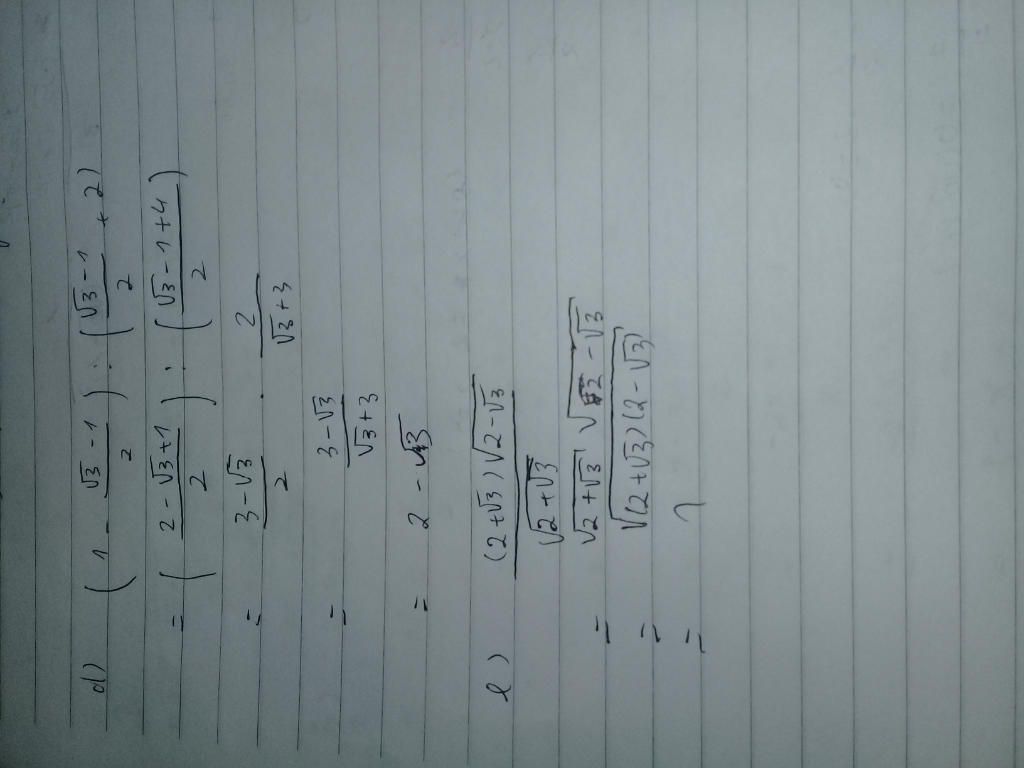 d) (1 - (√3 - 1)/2) : ((√3 - 1)/2 + 2)
= ((2 - √3 + 1)/2) : ((√3 - 1 + 4)/2)
= (3 - √3)/2 · 2/(√3 + 3)
= (3 - √3)/(√3 + 3)
= 2 - √3
e) ((2 + √3)√(2 - √3))/√(2 + √3)
= √(2 + √3) √(2 - √3)
= √((2 + √3)(2 - √3))
= 1